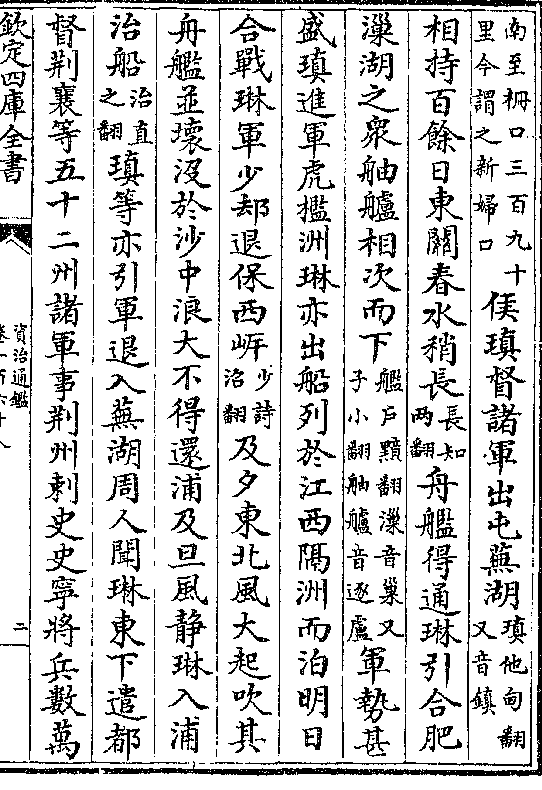 南至柵口三百九十
里今謂之新婦口
侯瑱督諸軍出屯蕪湖
瑱他甸翻
又音鎮
相持百餘日東關春水稍長
長知
兩翻
舟艦得通琳引合肥
漅湖之衆舳艫相次而下
艦戶黤翻漅音巢又
子小翻舳艫音逐盧
軍勢甚
盛瑱進軍虎檻洲琳亦出船列於江西隔洲而泊明日
合戰琳軍少却退保西㟁
少詩
沼翻
及夕東北風大起吹其
舟艦並壊沒於沙中浪大不得還浦及旦風静琳入浦
治船
治直
之翻
瑱等亦引軍退入蕪湖周人聞琳東下遣都
督荆襄等五十二州諸軍事荆州刺史史寧將兵數萬
欽定四庫全書
資治通鑑
卷一百六十八
二